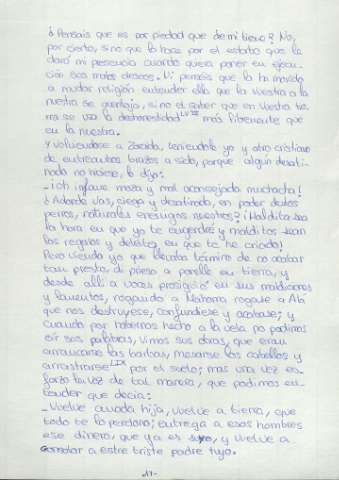 ¿Pensais que es por piedad que de mi tiene? No,
por cierto, sino que lo hace por el estorbo que le
dará mi presencia cuando quiera poner en ejecu-
ción sus malos deseos. Ni penséis que la ha movido
a mudar religión entender ella que la vuestra a la
nuestra se aventaja, sino el saber que en vuestra tie-
rra se usa la deshonestidad más libremente que
en la nuestra.
Y volviéndose a Zoraida, teniéndole yo y otro cristiano
de entrambos brazos asido, porque algún desati-
no no hiciese, le dijo:
- ¡Oh infame moza y mal aconsejada muchacha!
¿Adonde vas, ciega y desatinada, en poder destos
perros, naturales enemigos nuestros? ¡Maldita sea
la hora en que yo te engendré y malditos sean
los regalos y deleites en que te he criado!
Pero viendo yo que llevaba término de no acabar
tan presto, di prisa a ponelle en tierra, y
desde allí a voces prosiguió en sus maldiciones
y lamentos, rogando a Mahoma rogase a Alá
que nos destruyese, confundiese y acabase; y
cuando por habernos hecho a la vela no podimos
oír sus palabras, vimos sus obras, que eran
arrancarse las barbas, mesarse los cabellos y
arrastrarse LIX por el suelo; mas una vez es-
forzó la voz de tal manera, que podimos en-
tender que decía:
- Vuelve amada hija, vuelve a tierra, que
todo te lo perdono; entrega a esos hombres
ese dinero, que ya es suyo, y vuelve a
consolar a este triste padre tuyo.